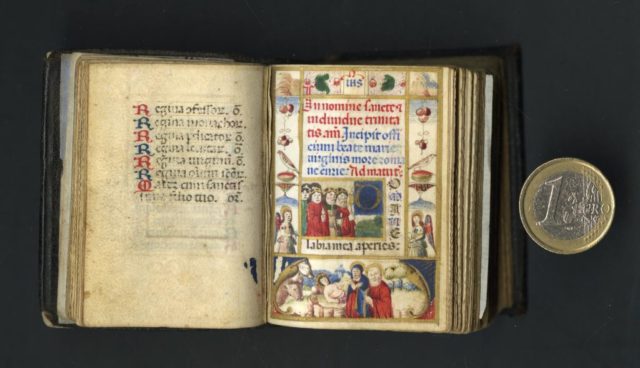 Regina ɔfessor. o̅.
Regina monachor.
Regina p̄dicator. o̅.
Regina leuitar. o̅.
Regina uirginū. o̅.
Regina oīum scōr.
Mater cum sanctis
simo filio tuo. or̄.
IHS
In nomine sancte &
indiuidue trinita
tis. am̄. Incipit offi
cium beate marie
uirginis more roma
ne curie. Ad matut̄.
DOMINE
labia mea aperies:
1 EURO